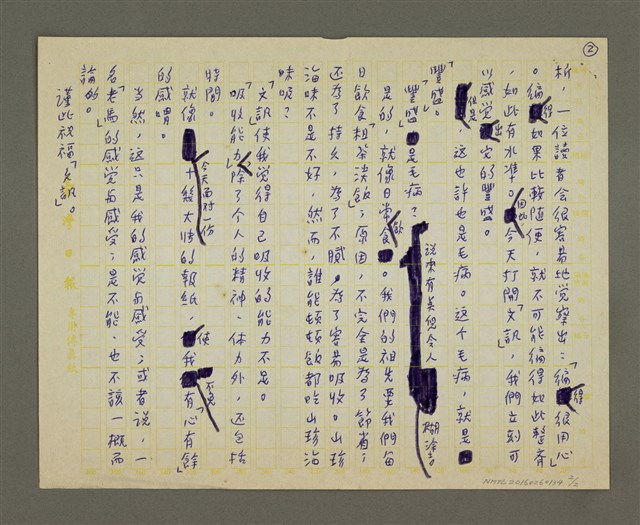 ②
析，一位讀者会很容易地觉察出：編得很用心
。編得如果比較随便，就不可能編得如此整齊
，如此有水準。因此今天打開「文訊」，我們立刻可
以感觉出它的豐盛。
但是，这也許也是毛病。这个毛病，就是
「豐盛」。
「豐盛」是毛病？說來有英但令人糊涂
是的，就像日常飲食。我們的祖先要我們每
日飲食粗茶淡飯；原因，不完全是為了節省；
还為了持久，為了不膩，為了容易吸收。山珍
海味不是不好，然而，誰能頓頓飯都吃山珍海
味呢？
「文訊」使我觉得自己吸收的能力不足。
「吸收能力」除了个人的精神、体力外，还包括
時間。
就像今天面对一份十幾大張的報紙，使我不免「有心有餘」
的感喟。
当然，这只是我的感觉与感受；或者説，一
名「老馬」的感觉与感受；是不能、也不該一概而
論的。
謹此祝福「文訊」。
NMTL20160260194 2/2